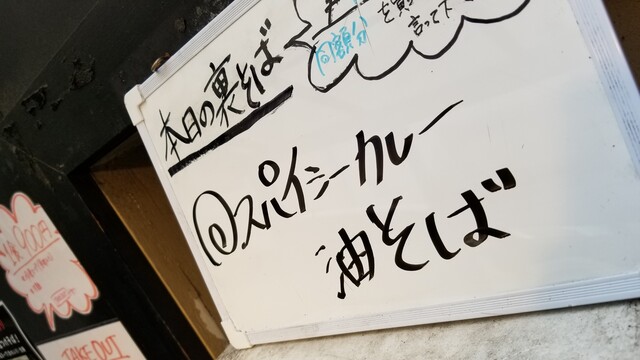 本日の裏そば
同額分
を買
言って下
@スパイシーカレー
油そば
900円
TAKE OUT